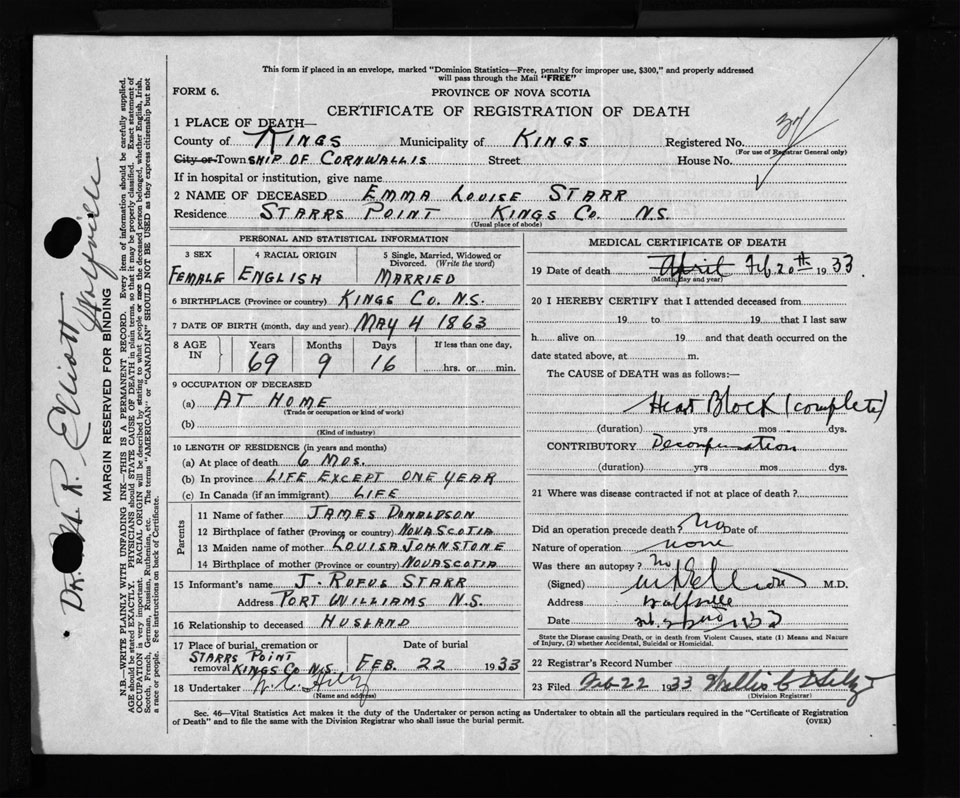 This form if placed in an envelope, marked "Dominion Statistics—Free, penalty for improper use, $300," and properly addressed
will pass through the Mail "FREE"
FORM 6. PROVINCE OF NOVA SCOTIA
CERTIFICATE OF REGISTRATION OF DEATH
1 PLACE OF DEATH—
County of KINGS Municipality of KINGS Registered No.
(For use of Registrar General only)
City or TownSHIP OF CORNWALLIS Street House No.
If in hospital or institution, give name
2 NAME OF DECEASED EMMA LOUISE STARR
Residence STARRS POINT KINGS CO. N.S.
(Usual place of abode)
PERSONAL AND STATISTICAL INFORMATION
3 SEX 4 RACIAL ORIGIN 5 Single, Married, Widowed or
Divorced. (Write the word)
FEMALE ENGLISH MARRIED
6 BIRTHPLACE (Province or country) KINGS CO. N.S.
7 DATE OF BIRTH (month, day and year) MAY 4 1863
8 AGE IN Years Months Days If less than one day,
69 9 16 hrs. or min.
9 OCCUPATION OF DECEASED
(a) AT HOME
(Trade or occupation or kind of work)
(b)
(Kind of industry)
10 LENGTH OF RESIDENCE (in years and months)
(a) At place of death 6 MOS.
(b) In province LIFE EXCEPT ONE YEAR
(c) In Canada (if an immigrant) LIFE
Parents
11 Name of father JAMES DONALDSON
12 Birthplace of father (Province or country) NOVA SCOTIA
13 Maiden name of mother LOUISA JOHNSTONE
14 Birthplace of mother (Province or country) NOVA SCOTIA
15 Informant's name J. RUFUS STARR
Address PORT WILLIAMS N.S.
16 Relationship to deceased HUSLAND
17 Place of burial, cremation or Date of burial
STARRS POINT
removal KINGS CO N.S. FEB. 22 1933
18 Undertaker
(Name and address)
MEDICAL CERTIFICATE OF DEATH
19 Date of death April Feb. 20th 1933
(Month, day and year)
20 I HEREBY CERTIFY that I attended deceased from
19 to 19 that I last saw
h alive on 19 and that death occurred on the
date stated above, at m.
The CAUSE of DEATH was as follows:—
Heart Block (complete)
(duration) yrs mos dys.
CONTRIBUTORY Decompensation
(duration) yrs mos dys.
21 Where was disease contracted if not at place of death?
Did an operation precede death? No Date of
Nature of operation none
Was there an autopsy? No
(Signed) M.D.
Address Wolfville
Date
State the Disease causing Death, or in death from Violent Causes, state (1) Means and Nature
of Injury, (2) whether Accidental, Suicidal or Homicidal.
22 Registrar's Record Number
23 Filed Feb 22 1933
(Division Registrar)
Sec. 46—Vital Statistics Act makes it the duty of the Undertaker or person acting as Undertaker to obtain all the particulars required in the "Certificate of Registration
of Death" and to file the same with the Division Registrar who shall issue the burial permit. (OVER)
DR. R. Elliott
Wolfville
MARGIN RESERVED FOR BINDING
N.B.—WRITE PLAINLY WITH UNFADING INK—THIS IS A PERMANENT RECORD. Every item of information should be carefully supplied.
AGE should be stated EXACTLY. PHYSICIANS should STATE CAUSE OF DEATH in plain terms, so that it may be properly classified. Exact statement of
OCCUPATION is very important. RACIAL ORIGIN will be described by stating to what people or race the deceased person belonged, whether English, Irish,
Scotch, French, German, Russian, Ruthenian, etc. The terms "AMERICAN" or "CANADIAN" SHOULD NOT BE USED as they express citizenship but not
a race or people. See instructions on back of Certificate.